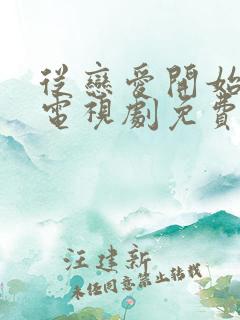 從戀愛開始
電視劇免費
汪建新
未任同意禁止转载